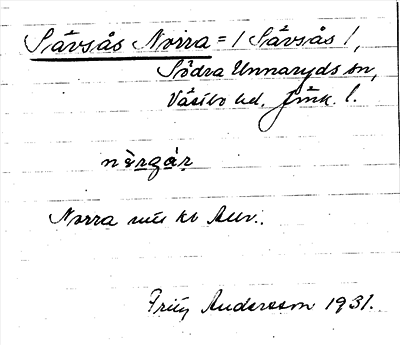 Sävsås Norra = / Sävsås /,
Södra Unnaryds sn,
Västbo hd, Jönk. l.
nè̱rgár
Norra
Fritz Andersson 1931.